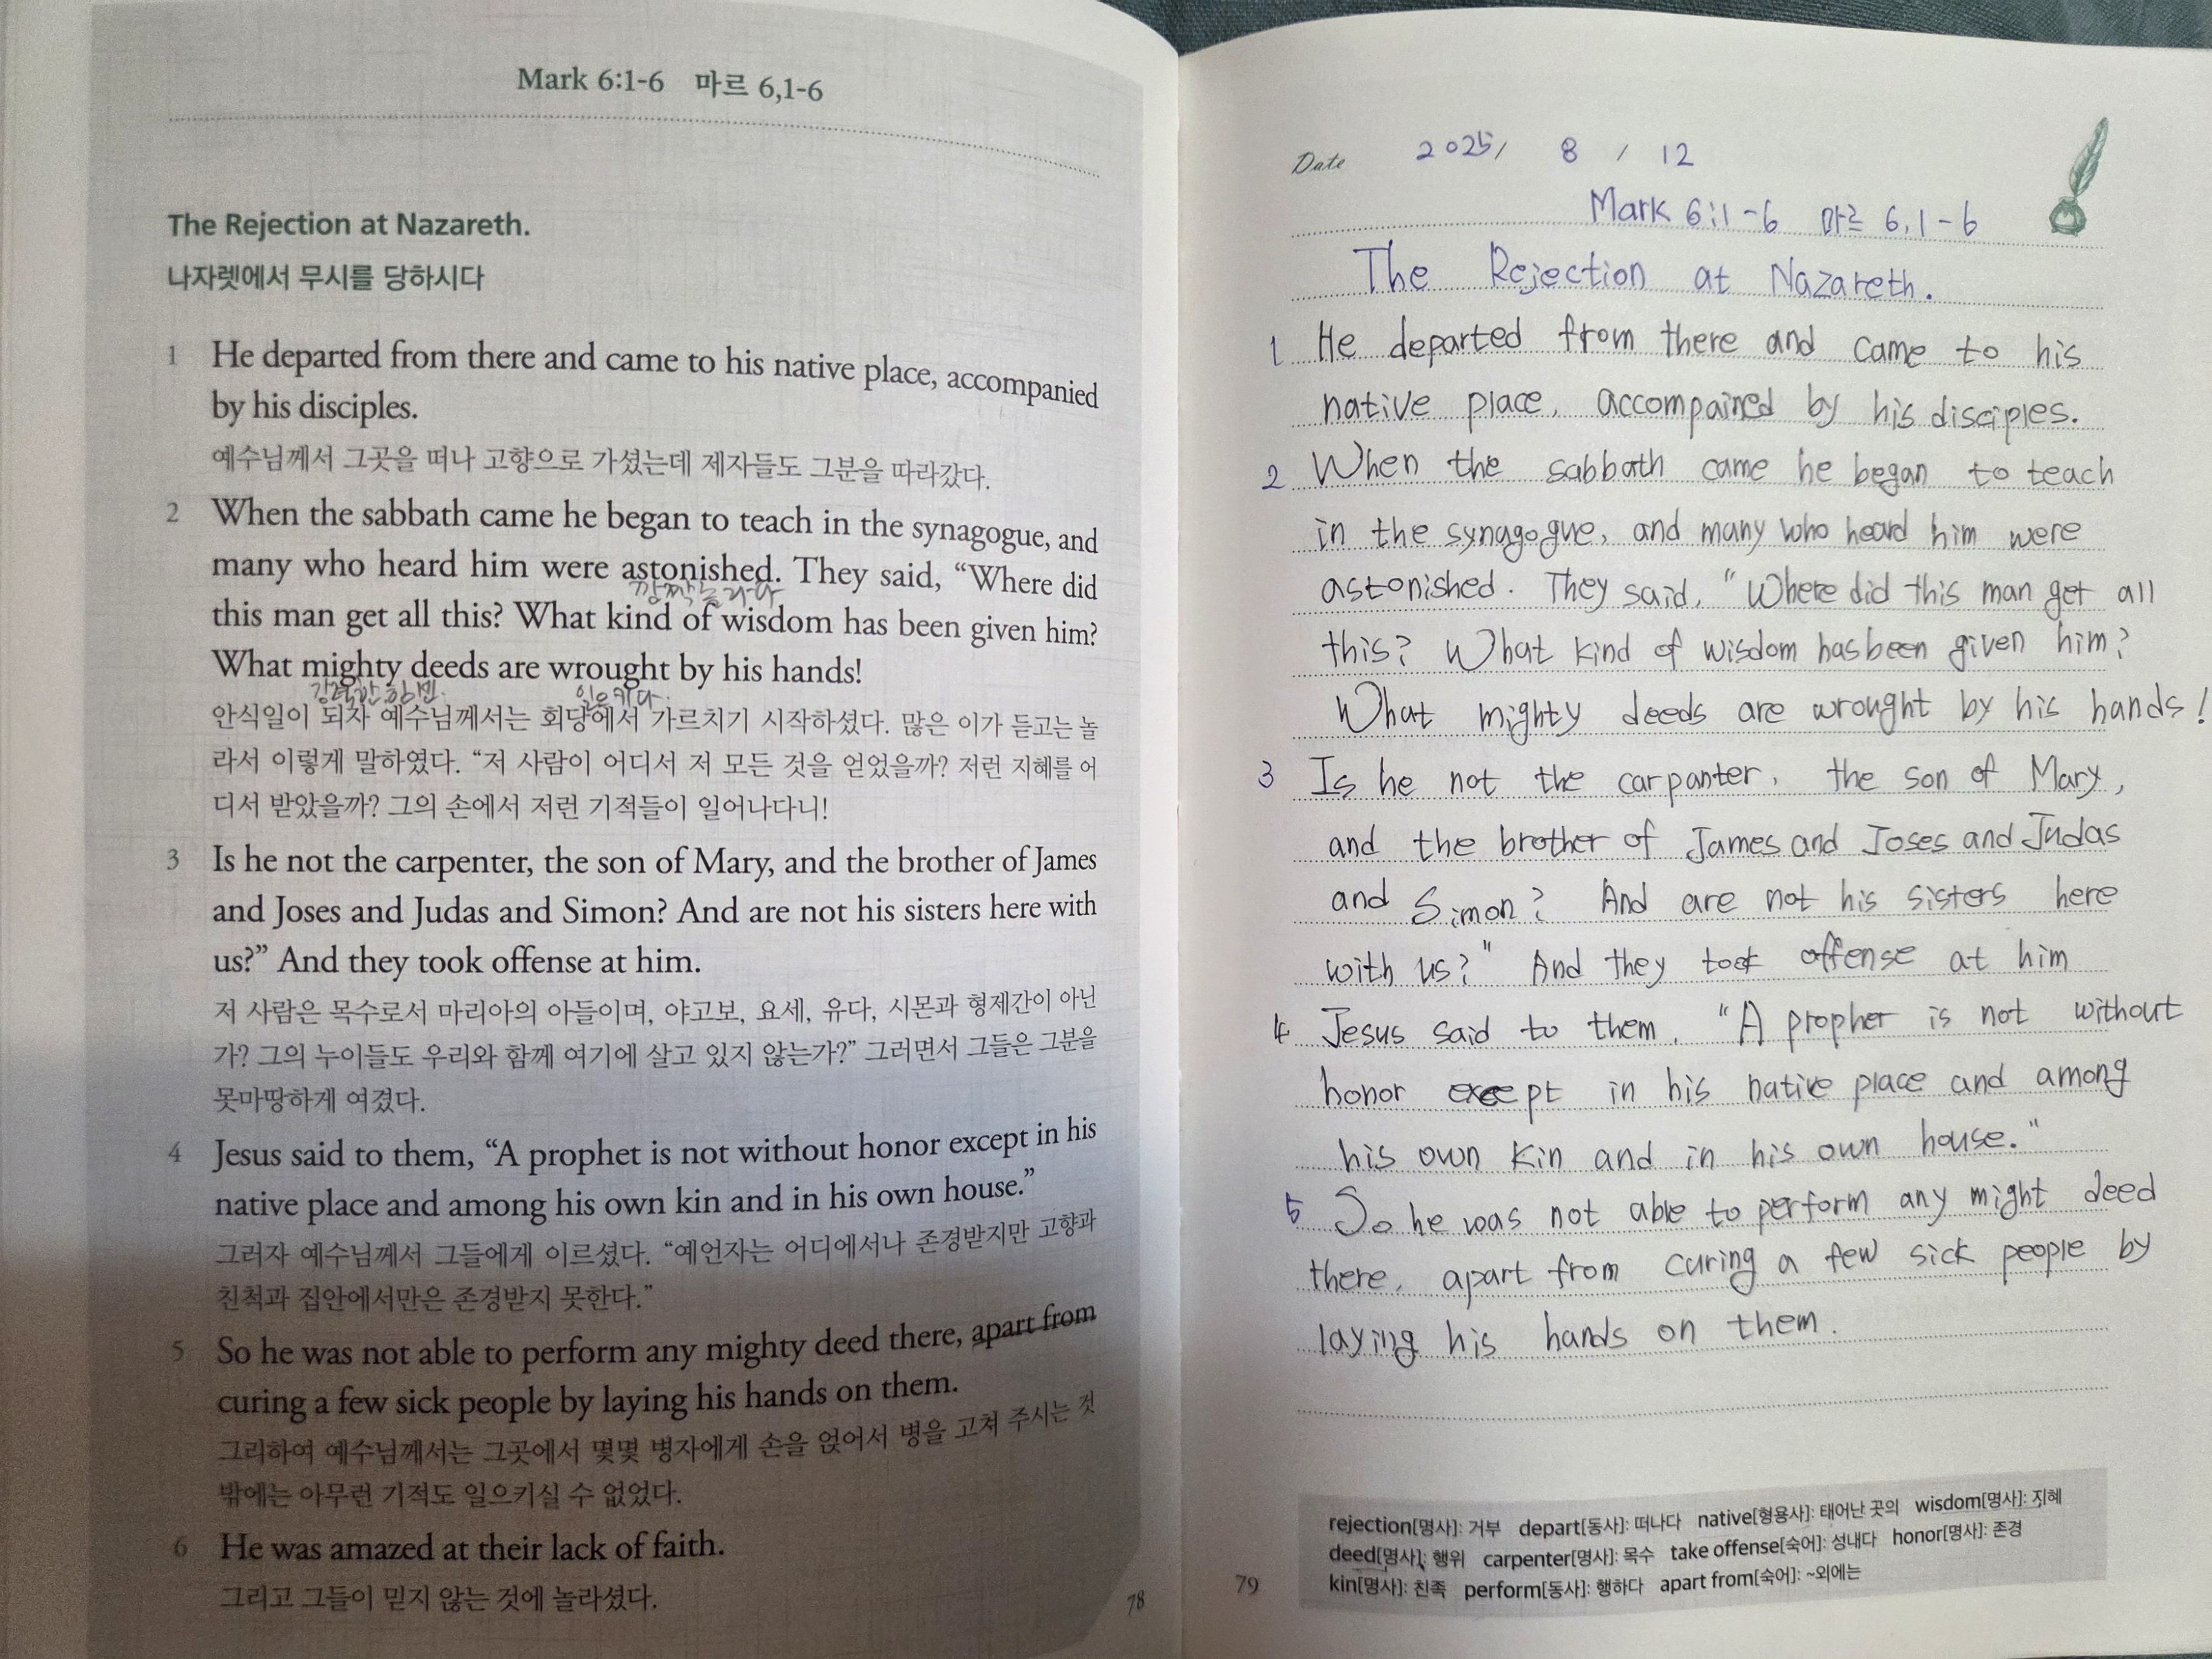 Mark 6:1-6 마르 6,1-6
The Rejection at Nazareth.
나자렛에서 무시를 당하시다
1 He departed from there and came to his native place, accompanied
by his disciples.
예수님께서 그곳을 떠나 고향으로 가셨는데 제자들도 그분을 따라갔다.
2 When the sabbath came he began to teach in the synagogue, and
many who heard him were astonished. They said, “Where did
깜짝 놀라다
this man get all this? What kind of wisdom has been given him?
What mighty deeds are wrought by his hands!
강력한, 힘센 일으키다
안식일이 되자 예수님께서는 회당에서 가르치기 시작하셨다. 많은 이가 듣고는 놀
라서 이렇게 말하였다. “저 사람이 어디서 저 모든 것을 얻었을까? 저런 지혜를 어
디서 받았을까? 그의 손에서 저런 기적들이 일어나다니!
3 Is he not the carpenter, the son of Mary, and the brother of James
and Joses and Judas and Simon? And are not his sisters here with
us?” And they took offense at him.
저 사람은 목수로서 마리아의 아들이며, 야고보, 요세, 유다, 시몬과 형제간이 아닌
가? 그의 누이들도 우리와 함께 여기에 살고 있지 않는가?” 그러면서 그들은 그분을
못마땅하게 여겼다.
4 Jesus said to them, “A prophet is not without honor except in his
native place and among his own kin and in his own house.”
그러자 예수님께서 그들에게 이르셨다. “예언자는 어디에서나 존경받지만 고향과
친척과 집안에서만은 존경받지 못한다.”
5 So he was not able to perform any mighty deed there, apart from
curing a few sick people by laying his hands on them.
그리하여 예수님께서는 그곳에서 몇몇 병자에게 손을 얹어서 병을 고쳐 주시는 것
밖에는 아무런 기적도 일으키실 수 없었다.
6 He was amazed at their lack of faith.
그리고 그들이 믿지 않는 것에 놀라셨다.
78
Date 2025/ 8 / 12
Mark 6:1-6 마르 6,1-6
The Rejection at Nazareth.
1 He departed from there and came to his
native place, accompained by his disciples.
2 When the sabbath came he began to teach
in the synagogue, and many who heard him were
astonished. They said, "Where did this man get all
this? What kind of wisdom has been given him?
What mighty deeds are wrought by his hands!
3 Is he not the carpanter, the son of Mary,
and the brother of James and Joses and Judas
and Simon? And are not his sisters here
with us?" And they took offense at him
4 Jesus said to them, "A propher is not without
honor except in his native place and among
his own kin and in his own house."
5 So he was not able to perform any might deed
there, apart from curing a few sick people by
laying his hands on them.
rejection[명사]: 거부 depart[동사]: 떠나다 native[형용사]: 태어난 곳의 wisdom[명사]: 지혜
deed[명사]: 행위 carpenter[명사]: 목수 take offense[숙어]: 성내다 honor[명사]: 존경
kin[명사]: 친족 perform[동사]: 행하다 apart from[숙어]: ~외에는
79